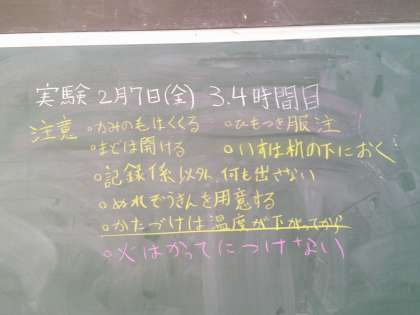 実験 2月7日(金) 3.4時間目
注意 。かみの毛はくくる 。ひもつき服注
。まどは開ける 。いすは机の下におく
。記録係以外、何も出さない
。ぬれぞうきんを用意する
。かたづけは温度が下がってから
。火はかってにつけない